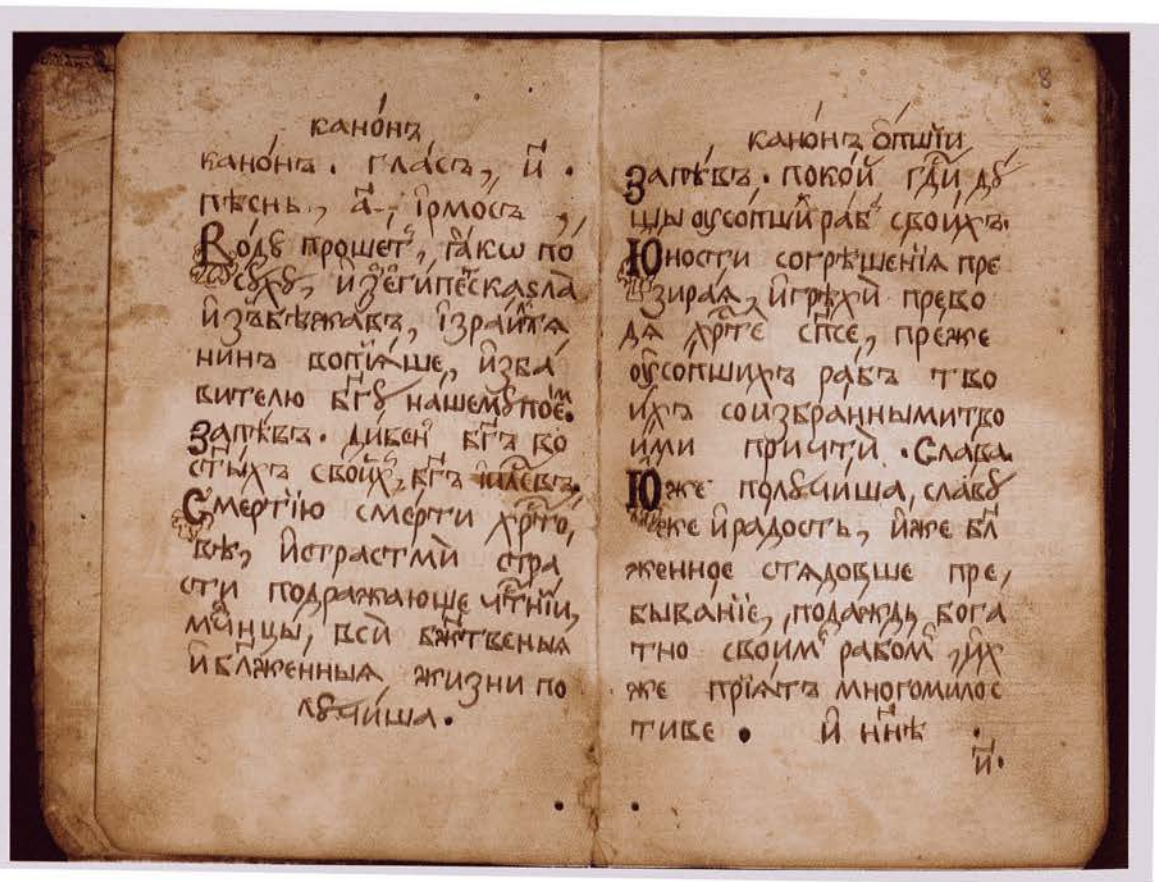 кано́нъ
кано́нъ . гла́съ, и҃ .
пѣ́снь , а҃ , і҆рмо́съ ,
Во́дꙋ проше́тъ, ꙗ҆́кѡ по
сꙋ́хꙋ, и҆з̾ е҆ги́песка ѕла
и҆з̾бѣжа́въ, і҆зраи́лтѧ
нинъ вопїѧ́ше, и҆зба́
вителю бг҃ꙋ на́шемꙋ пое́м.
Запѣ́въ . ди́венъ бг҃ъ во
ст҃ы́хъ свои́хъ, бг҃ъ і҆и҃левъ.
Сме́ртїю сме́рти хрⷭ҇то́,
вѣ, и҆ страстмѝ стра́
сти подража́юще чⷭ҇тні́и,
мч҃нцы, всѝ бжⷭ҇твеныѧ
и҆ бл҃же́нныѧ жи́зни по
лꙋчи́ша .
8
кано́нъ о҆́пшїи
Запѣ́въ . поко́й гд҃и дꙋ́
шы ᲂу҆со́пшиⷯ ра́бъ свои́хъ.
Ю҆́ности согрѣше́нїѧ пре
зира́ѧ, и҆ грѣхѝ прево
дѧ̀ хрⷭ҇тѐ сп҃се, пре́же
ᲂу҆со́пшихъ ра́бъ тво
и́хъ со и҆збра́нными тво
и́ми причтѝ . Сла́ва.
Ю҆́же полꙋчи́ша, сла́вꙋ
же и҆ ра́дость, и҆́же бл҃
же́нное стѧдо́вше пре,
быва́нїе, пода́ждь бога́
тно свои́мъ рабо́мъ, и҆́х
же прїѧ́тъ многоми́лос
тиве . и҆ нн҃ѣ .
и҃.